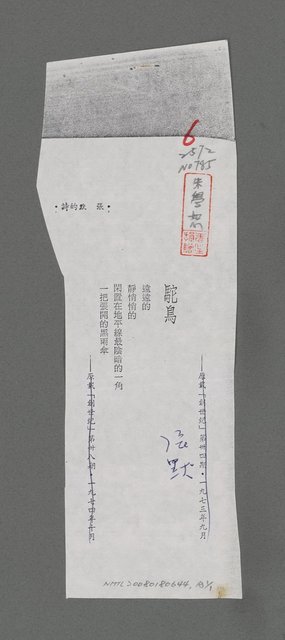 6
2572
No 785
張默的詩
鴕鳥
遠遠的
靜悄悄的
閑置在地平線最陰暗的一角
一把張開的黑雨傘
——原載「創世紀」第卅四期·一九七三年九月
張默
——原載「創世紀」第卅八期·一九七四年十月
NMTL20080180644, 1/1